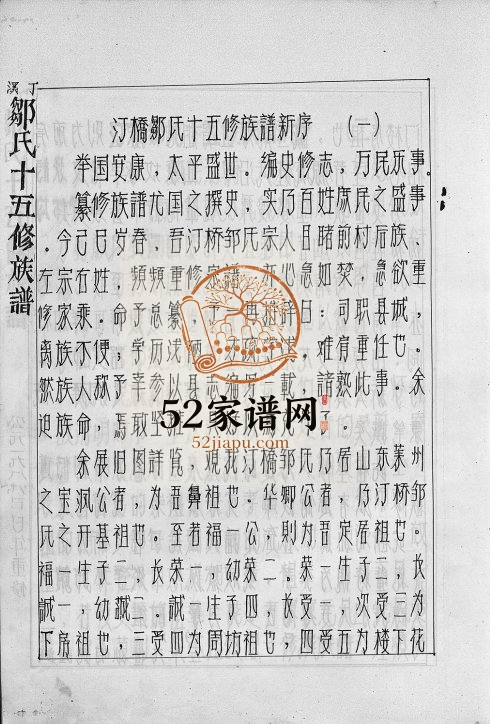 鄒氏十五修族譜
汀橋邹氏十五修族譜新序 (一)
举国安康，太平盛世。编史修志，万民乐事。
纂修族譜尤国之撰史，实乃百姓庶民之盛事
。今己巳岁春，吾汀桥邹氏宗人县睹前村后族、
左宗右姓，頻頻重修家譜，亦心急如焚，急欲重
修家乘。命予总纂，予再推辞曰：司职县城，
离族不便；学历浅陋，学浅，难肩重任也。
然族人称予幸参以县志三載，諳熟此事。余
迫族命，焉敢坐了。
余展旧图詳览，覌我汀橋邹氏乃居山东莱州
之宝渢公者，为吾鼻祖也。华卿公者，乃汀桥邹
氏之开基祖也。至者福一公，則为吾定居祖也。
福一生子二，长荣一，幼荣二。荣一生子二，长
誠一，幼誠二。誠一生子四，长受一，次受三为
下房祖也，三受四为周坊祖也，四受五为楼下花
52家谱网
52jiapu.com